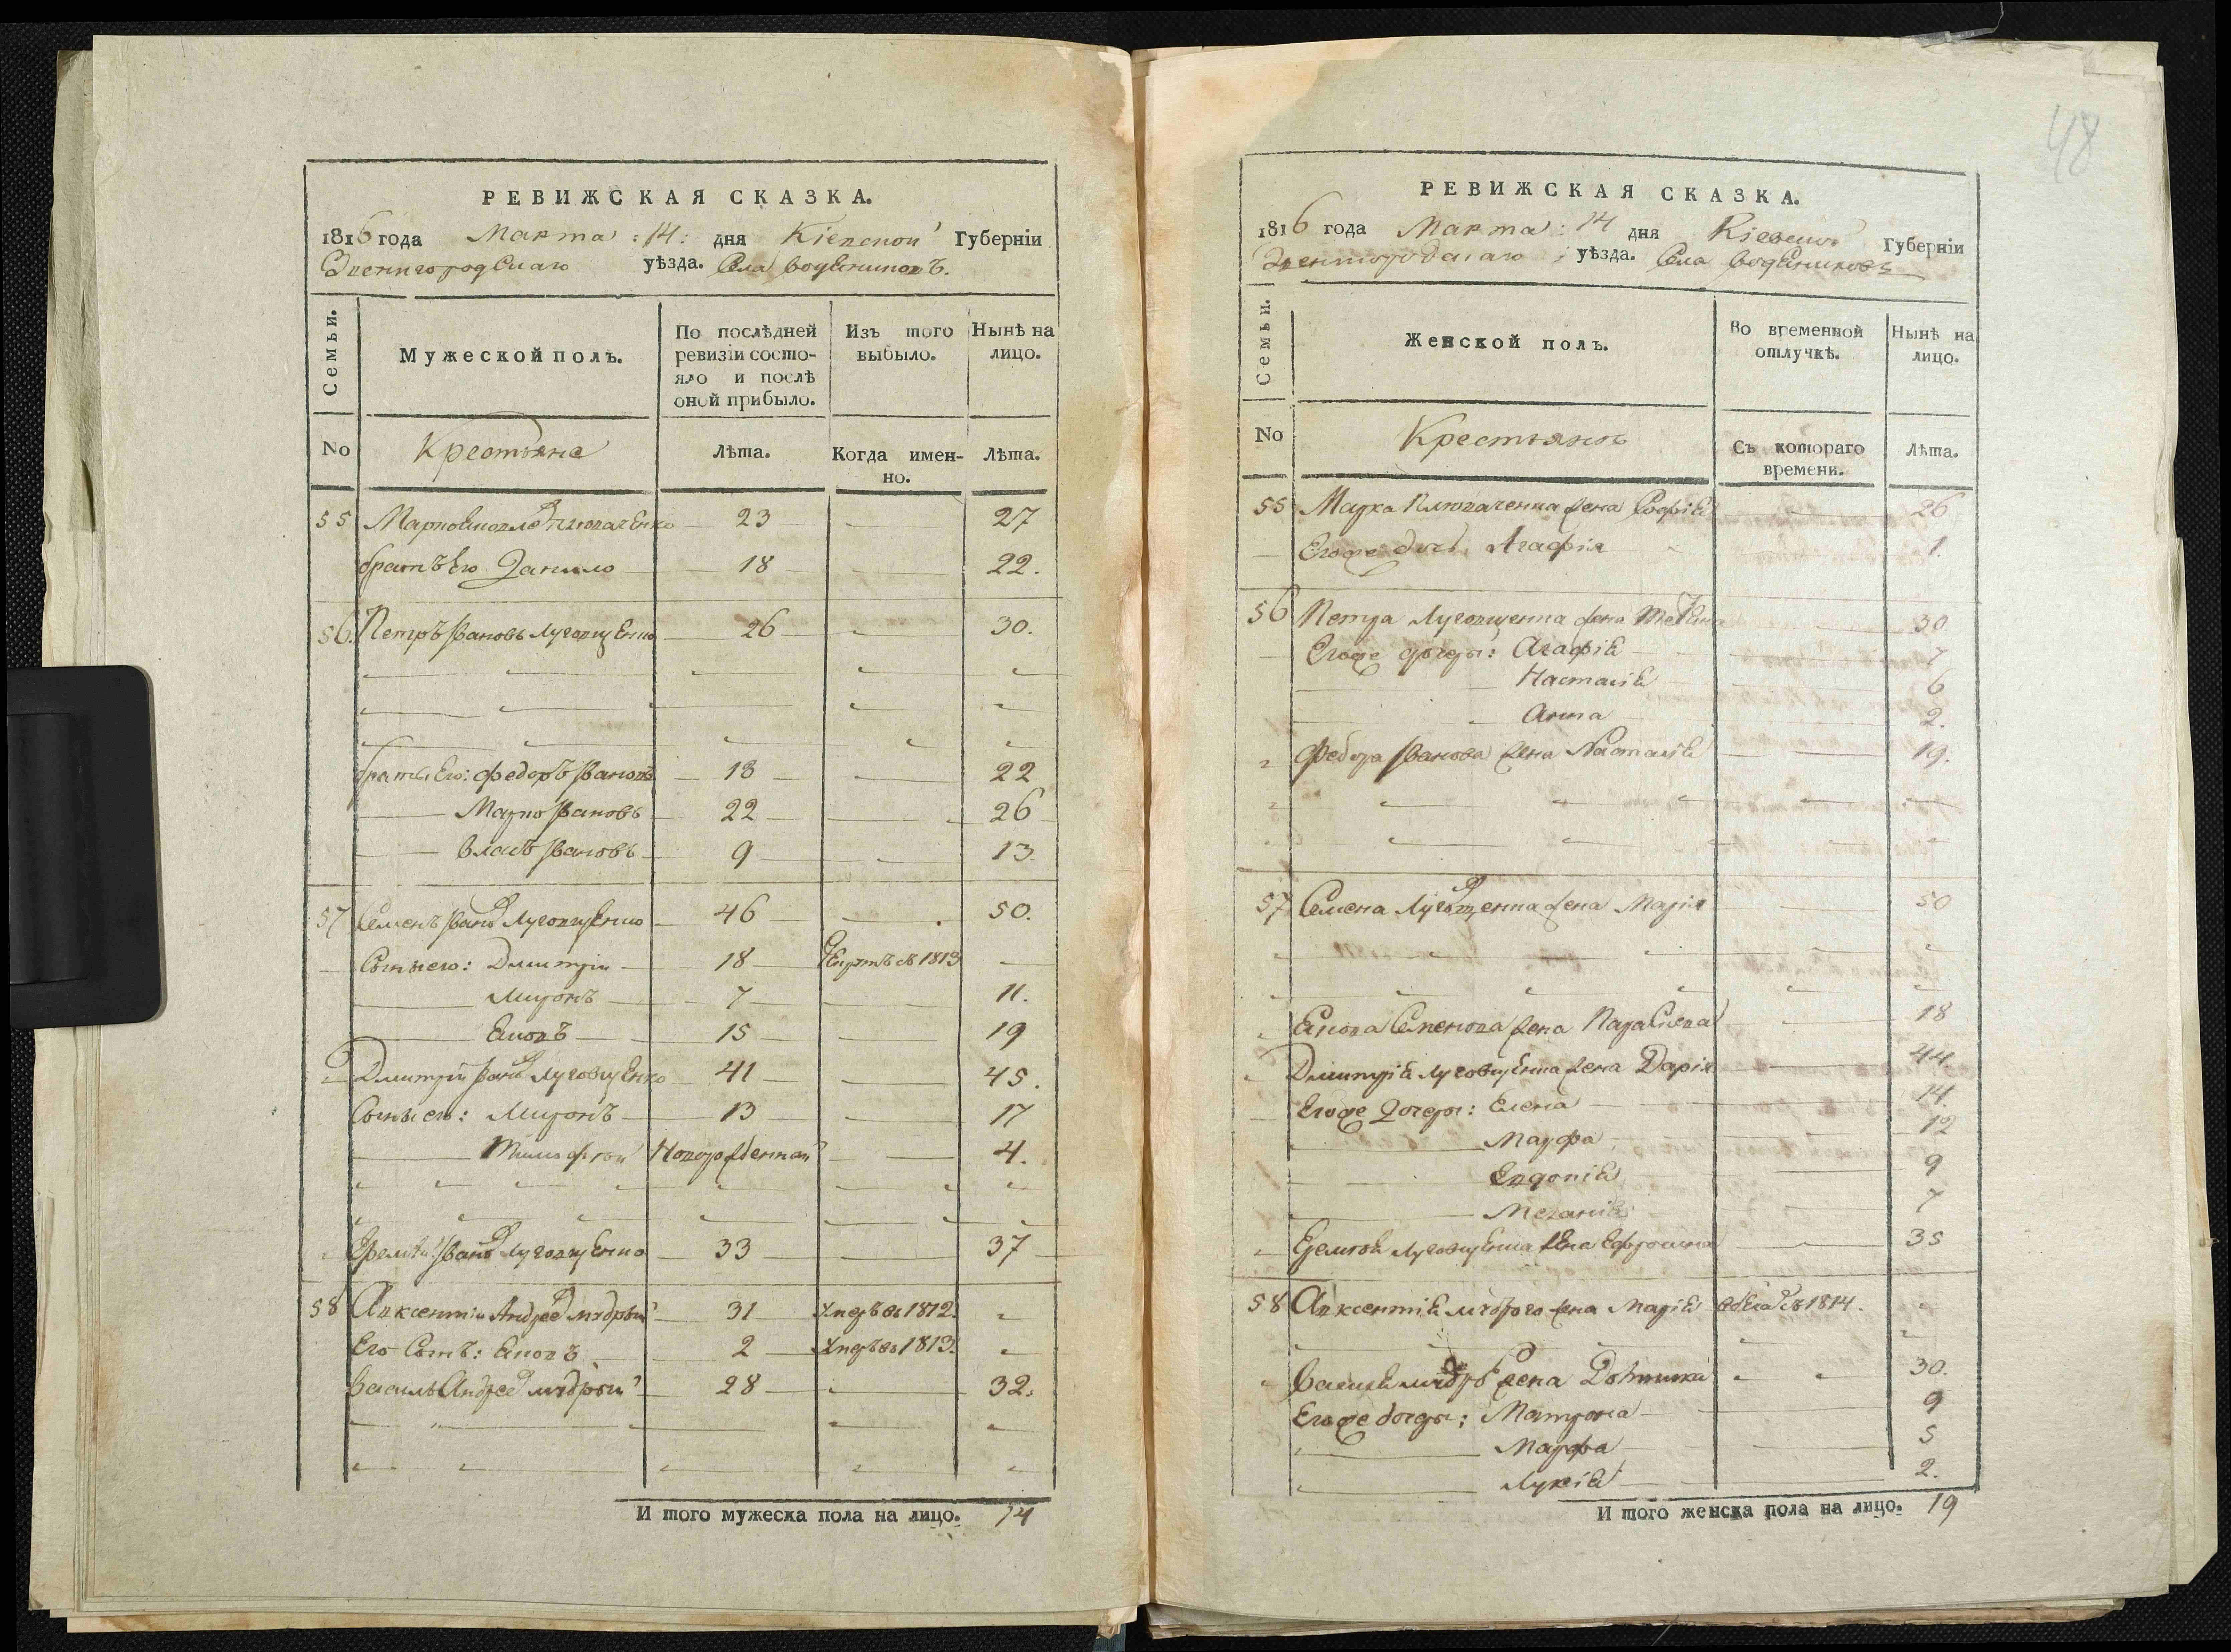 РЕВИЖСКАЯ СКАЗКА.
1816 года Марта : 14 : дня Кіевской Губерніи
Звенигородскаго уѣзда. Села Водяниковъ.
Семьи.
Мужеской полъ.
По послѣдней ревизіи состо-
яло и послѣ
оной прибыло.
Изъ того выбыло.
Нынѣ на лицо.
No Крестьяне Лѣта. Когда имен-
но. Лѣта.
55 Марко 23 27
братъ Его Данило 18 22.
56. Петръ Ивановъ Луговщенко 26 30.
братья Его: Федоръ Ивановъ 18 22
Марко Ивановъ 22 26
Власъ Ивановъ 9 13.
57 Семенъ Иванов Луговщенко 46 50.
Сыны его: Дмитрій 18 1813
Миронъ 7 11.
Яковъ 15 19
Дмитрій Иванов Луговщенко 41 45.
Сыны его: Миронъ 13 17
Тимофей Новорожденной 4.
Еремѣй Иванов Луговщенко 33 37
58 Авксентій Андреев Мудрый 31 Умеръ въ 1812.
Его Сынъ: Яковъ 2 Умеръ въ 1813.
Василь Андреев Мудрый 28 32.
И того мужеска пола на лицо. 14
48
РЕВИЖСКАЯ СКАЗКА.
1816 года Марта : 14 дня Кіевской Губерніи
Звенигородскаго уѣзда. Села Водяниковъ
Семьи.
Женской полъ.
Во временной
отлучкѣ.
Нынѣ на
лицо.
No Крестьянъ Съ котораго
времени. Лѣта.
55 Марка жена Софія 26
Егоже дочь Агафія 1.
56 Петра Луговщенка жена 30
Егоже дочери: Агафія 7
Настасія 6
Анна 2.
Федора Иванова жена Настасія 19.
57 Семена Луговщенка жена Марія 50
Якова Семенова жена Параскева 18
Дмитрія Луговщенка жена Дарія 44.
Егоже дочери: Елена 14.
Марфа 12
Евдокія 9
Меланія 7
Еремѣя Луговщенка жена Ефросина 35
58 Авксентія Мудрого жена Марія 1814.
Василя Мудро жена Домникія 30.
Егоже дочери: Матрона 9
Марфа 5
Лукія 2.
И того женска пола на лицо. 19